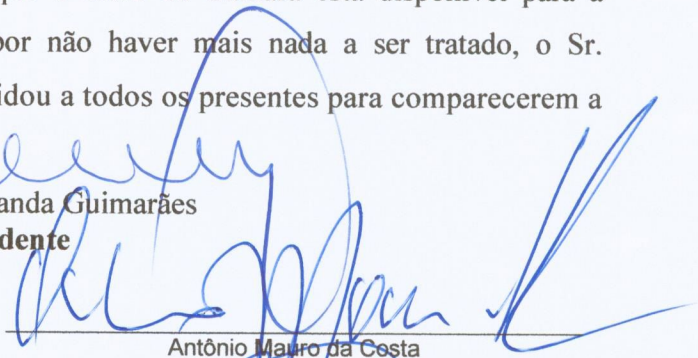 está disponível para a
por não haver mais nada a ser tratado, o Sr.
idou a todos os presentes para comparecerem a
anda Guimarães
dente
Antônio Mauro da Costa